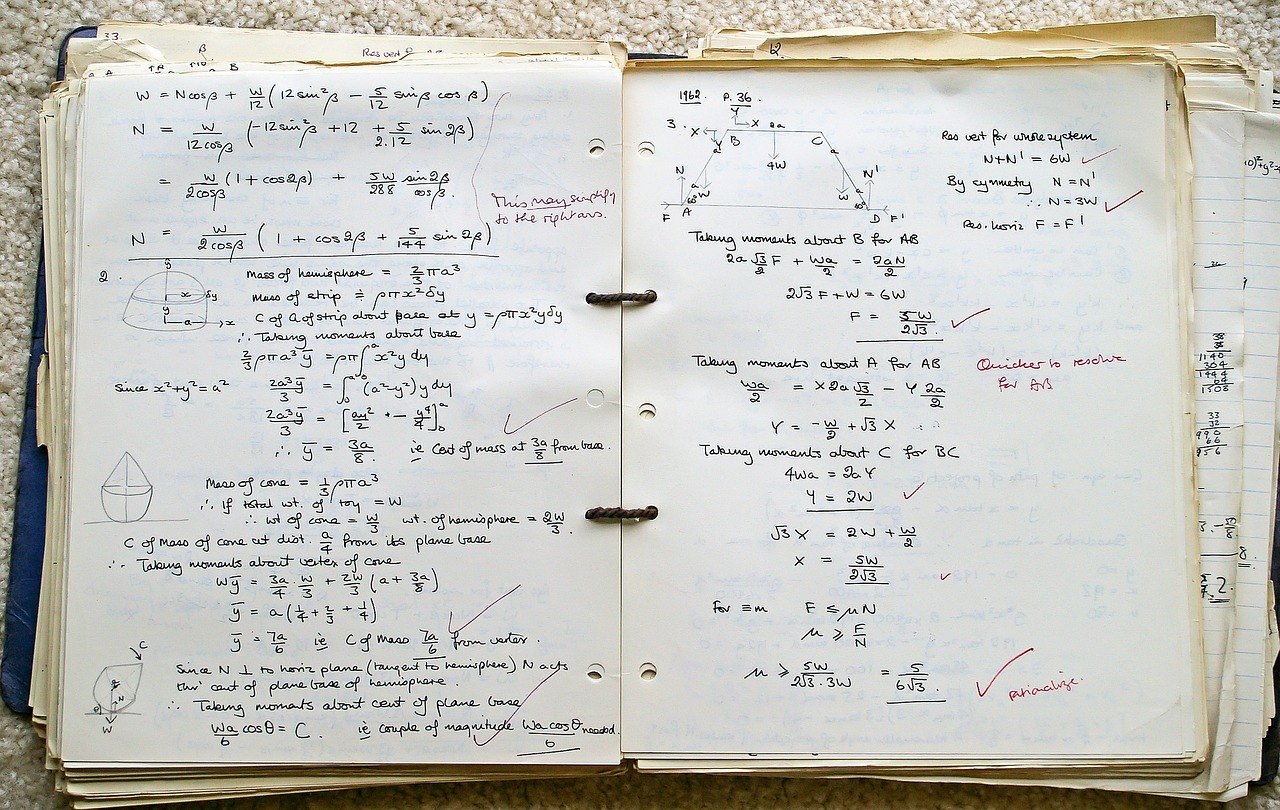 33.
β
Res vert
A
B
W = Ncosβ + W/12 (12 sin²β − 5/12 sinβ cosβ)
N = W/12cosβ (−12sin²β + 12 + 5/2.12 sin 2β)
= W/2cosβ (1 + cos2β) + 5W/288 sin2β/cosβ.
This may simplify
to the right ans.
N = W/2cosβ (1 + cos 2β + 5/144 sin 2β)
2.
y
x δy
y
a x
Mass of hemisphere = 2/3 πa³
Mass of strip ≑ ρπx²δy
C of G of strip about base at y = ρπx²yδy
∴ Taking moments about base
2/3 ρπa³ȳ = ρπ∫₀ᵃ x²y dy
Since x²+y²=a² 2a³ȳ/3 = ∫₀ᵃ (a²−y²) y dy
2a³ȳ/3 = [ay²/2 − y⁴/4]₀ᵃ
∴ ȳ = 3a/8 ie Cent of mass at 3a/8 from base.
Mass of cone = 1/3 ρπa³
∴ If total wt. of toy = W
∴ wt of cone = W/3 wt. of hemisphere = 2W/3.
C of Mass of cone at dist. a/4 from its plane base
∴ Taking moments about vertex of cone
Wȳ = 3a/4 . W/3 + 2W/3 (a + 3a/8)
ȳ = a(1/4 + 2/3 + 1/4)
ȳ = 7a/6 ie C of Mass 7a/6 from vertex.
C
N
θ
W
Since N ⊥ to horiz plane (tangent to hemisphere) N acts
thro' cent of plane base of hemisphere.
∴ Taking moments about cent of plane base
Wa/6 cosθ = C. ie couple of magnitude Wa cosθ/6 needed.
12.
1962. P. 36.
3.
Y
X X 2a
B C
Y
a a
4W
N N'
a a
W W
60° 60°
F A D F'
Res vert for whole system
N+N' = 6W
By symmetry N = N'
∴ N = 3W
Res. horiz F = F'
Taking moments about B for AB
2a √3/2 F + Wa/2 = 2aN/2
2√3 F + W = 6W
F = 5W/2√3.
Taking moments about A for AB
Quicker to resolve
for AB
Wa/2 = X 2a √3/2 − Y 2a/2
Y = −W/2 + √3 X
Taking moments about C for BC
4Wa = 2aY
Y = 2W
√3 X = 2W + W/2
X = 5W/2√3
For ≡m F ≤ μN
μ ≥ F/N
μ ≥ 5W/2√3.3W = 5/6√3.
rationalize.
38
38
1140
304
1444
64
1508
33
32
990
66
956
8.
2.